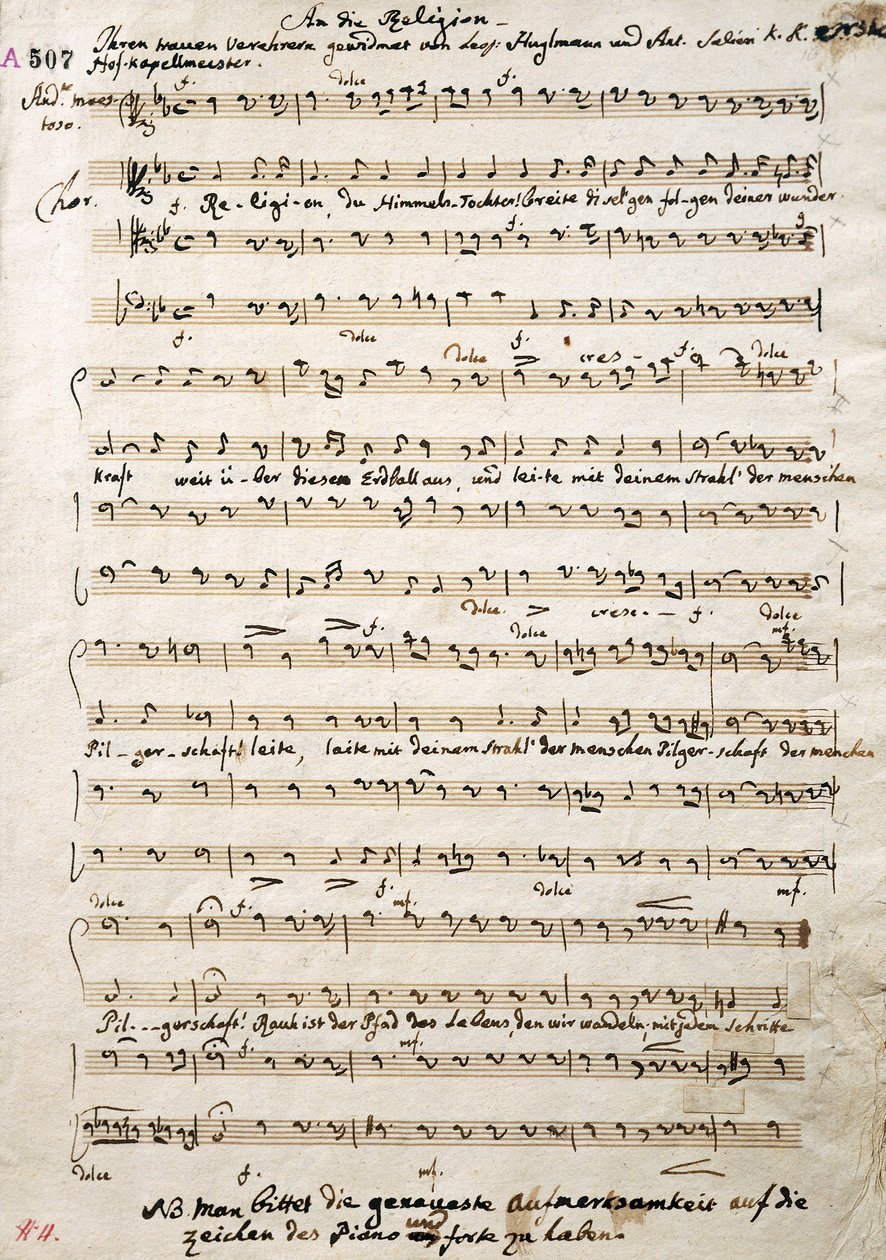 An die Religion –
A 507
Ihren trauen Verehrern gewidmet von Leop: Huglmann und Ant. Salieri K. K. erste
Hof-Kapellmeister.
And.te maes-
toso.
f. dolce f.
Chor. f. Re-ligi-on, du Himmels-Tochter! breite di sel'gen fol-gen deiner wunder
f.
f. dolce f.
dolce cres- f. dolce
Kraft weit ü-ber diesen Erdball aus, und lei-te mit deinem Strahl' der menschen
dolce. cresc.- f. dolce
f. dolce mf.
Pil-ger-schaft! leite, laite mit deinem Strahl' der menschen Pilger-schaft der menchen
f. dolce mf.
dolce f. mf.
Pil---gerschaft! Rauh ist der Pfad des Lebens, den wir wandeln, mit jedem Schritte
f. mf.
dolce f. mf.
NB. Man bittet die genaueste aufmerksamkeit auf die
zeichen des Piano und forte zu haben.